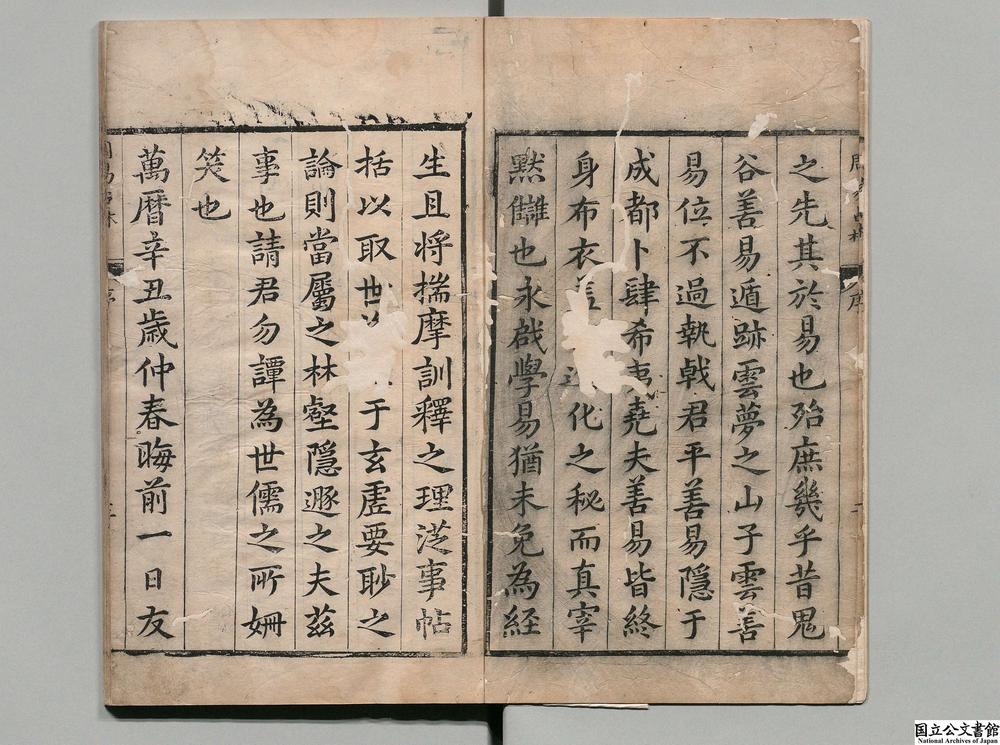 之先其於易也殆庶幾乎昔鬼
谷善易遁跡雲夢之山子雲善
易位不過執戟君平善易隱于
成都卜肆希夷堯夫善易皆終
身布衣 化之秘而真宰
黙讎也永啟學易猶未免為経
生且将揣摩訓釋之理從事帖
括以取世 于玄虛要眇之
論則當屬之林壑隱遯之夫茲
事也請君勿譚為世儒之所姍
笑也
萬曆辛丑歲仲春晦前一日友
序
国立公文書館
National Archives of Japan